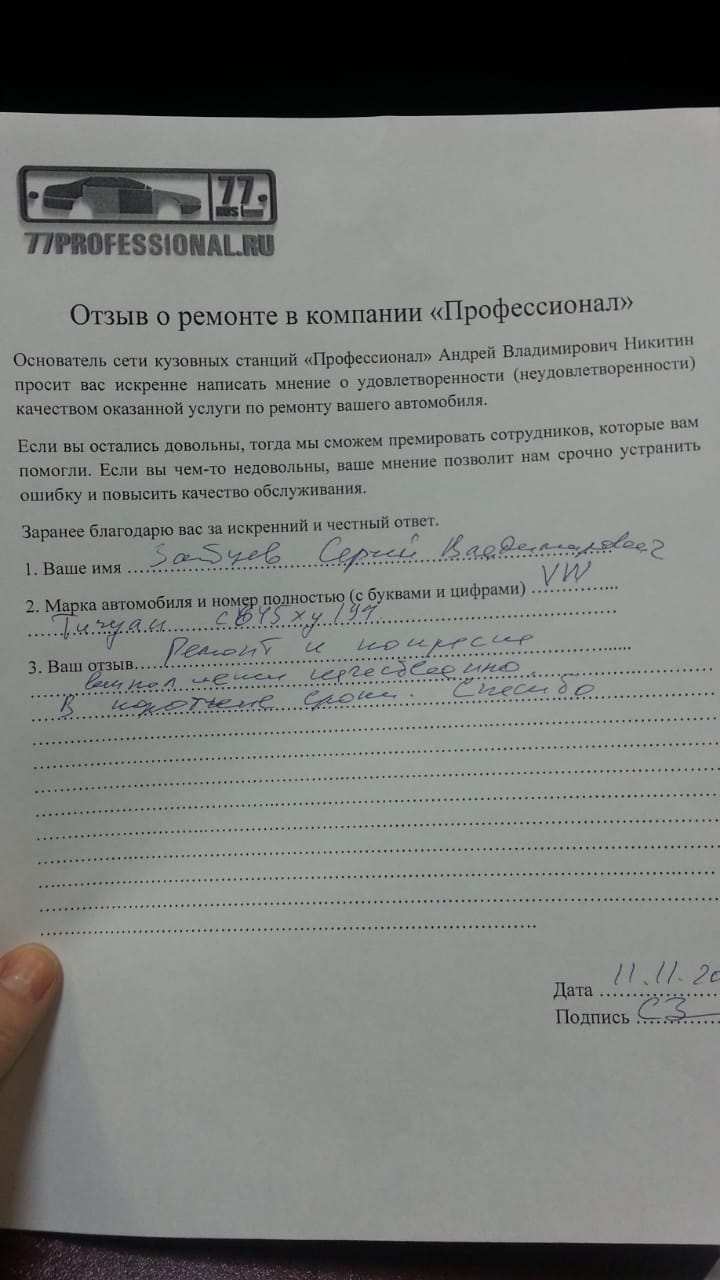 77
RUS
77PROFESSIONAL.RU
Отзыв о ремонте в компании «Профессионал»
Основатель сети кузовных станций «Профессионал» Андрей Владимирович Никитин
просит вас искренне написать мнение о удовлетворенности (неудовлетворенности)
качеством оказанной услуги по ремонту вашего автомобиля.
Если вы остались довольны, тогда мы сможем премировать сотрудников, которые вам
помогли. Если вы чем-то недовольны, ваше мнение позволит нам срочно устранить
ошибку и повысить качество обслуживания.
Заранее благодарю вас за искренний и честный ответ.
1. Ваше имя Сергей Владимирович
2. Марка автомобиля и номер полностью (с буквами и цифрами) VW
Тигуан
3. Ваш отзыв Ремонт и покраска
выполнены качественно
В короткие сроки. Спасибо
Дата 11.11.20
Подпись СЗ